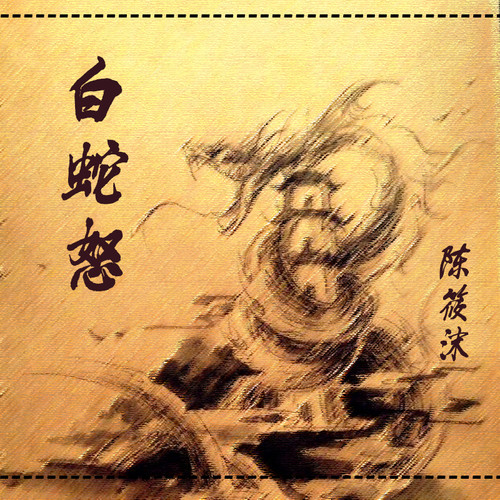 白蛇怒
陈筱沫